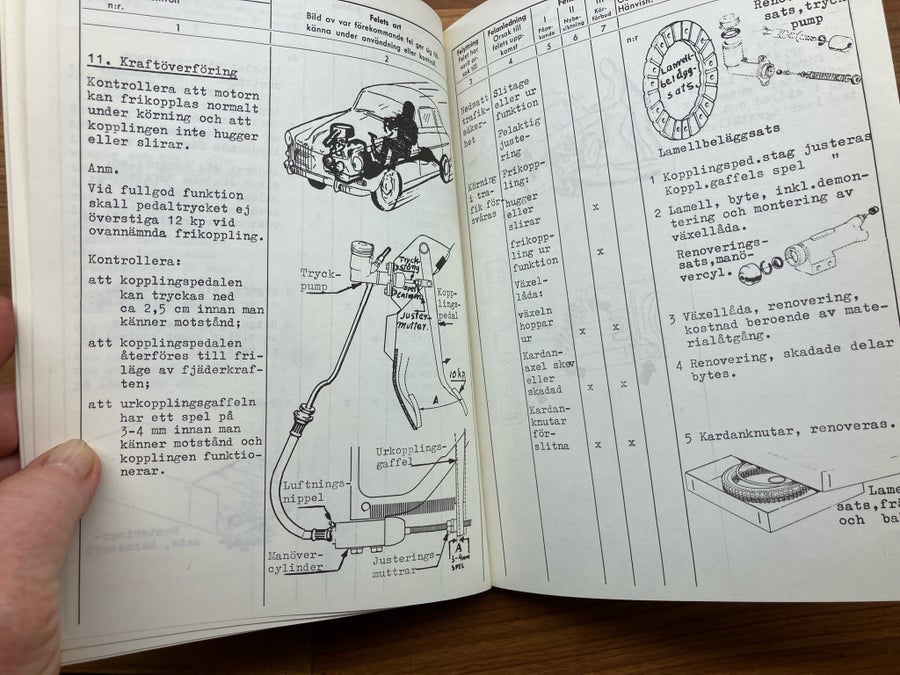 n:r.
1
Felets art
Bild av var förekommande fel ger sig till
känna under användning eller kontroll
2
11. Kraftöverföring
Kontrollera att motorn
kan frikopplas normalt
under körning och att
kopplingen inte hugger
eller slirar.
Anm.
Vid fullgod funktion
skall pedaltrycket ej
överstiga 12 kp vid
ovannämnda frikoppling.
Kontrollera:
att kopplingspedalen
kan tryckas ned
ca 2,5 cm innan man
känner motstånd;
att kopplingspedalen
återföres till fri-
läge av fjäderkraf-
ten;
att urkopplingsgaffeln
har ett spel på
3-4 mm innan man
känner motstånd och
kopplingen funktio-
nerar.
Tryck-
pump
Tryck-
stång
spel
Juster-
mutter.
Kopp-
lings-
pedal
10 kp.
A
Urkopplings-
gaffel
Luftnings-
nippel
Manöver-
cylinder
Justerings-
muttrar
A
3-4mm
SPEL
3
Felanledning
Orsak till
felets upp-
komst
4
I
5
II
6
III
Kör-
förbud
7
Hänvisn.
n:r
Nedsatt
trafik-
säker-
het
Slitage
eller ur
funktion
Felaktig
juste-
ring
Körning
i tra-
fik för-
svåras
Frikopp-
ling:
hugger
eller
slirar
x
frikopp-
ling ur
funktion
x
Växel-
låda:
växeln
hoppar
ur
x x
Kardan-
axel skev
eller
skadad
x x
Kardan-
knutar
för-
slitna
x x
Lamell-
belägg-
sats.
Lamellbeläggsats
sats,tryck
pump
1 Kopplingsped.stag justeras
Koppl.gaffels spel "
2 Lamell, byte, inkl.demon-
tering och montering av
växellåda.
Renoverings-
sats,manö-
vercyl.
3 Växellåda, renovering,
kostnad beroende av mate-
rialåtgång.
4 Renovering, skadade delar
bytes.
5 Kardanknutar, renoveras.